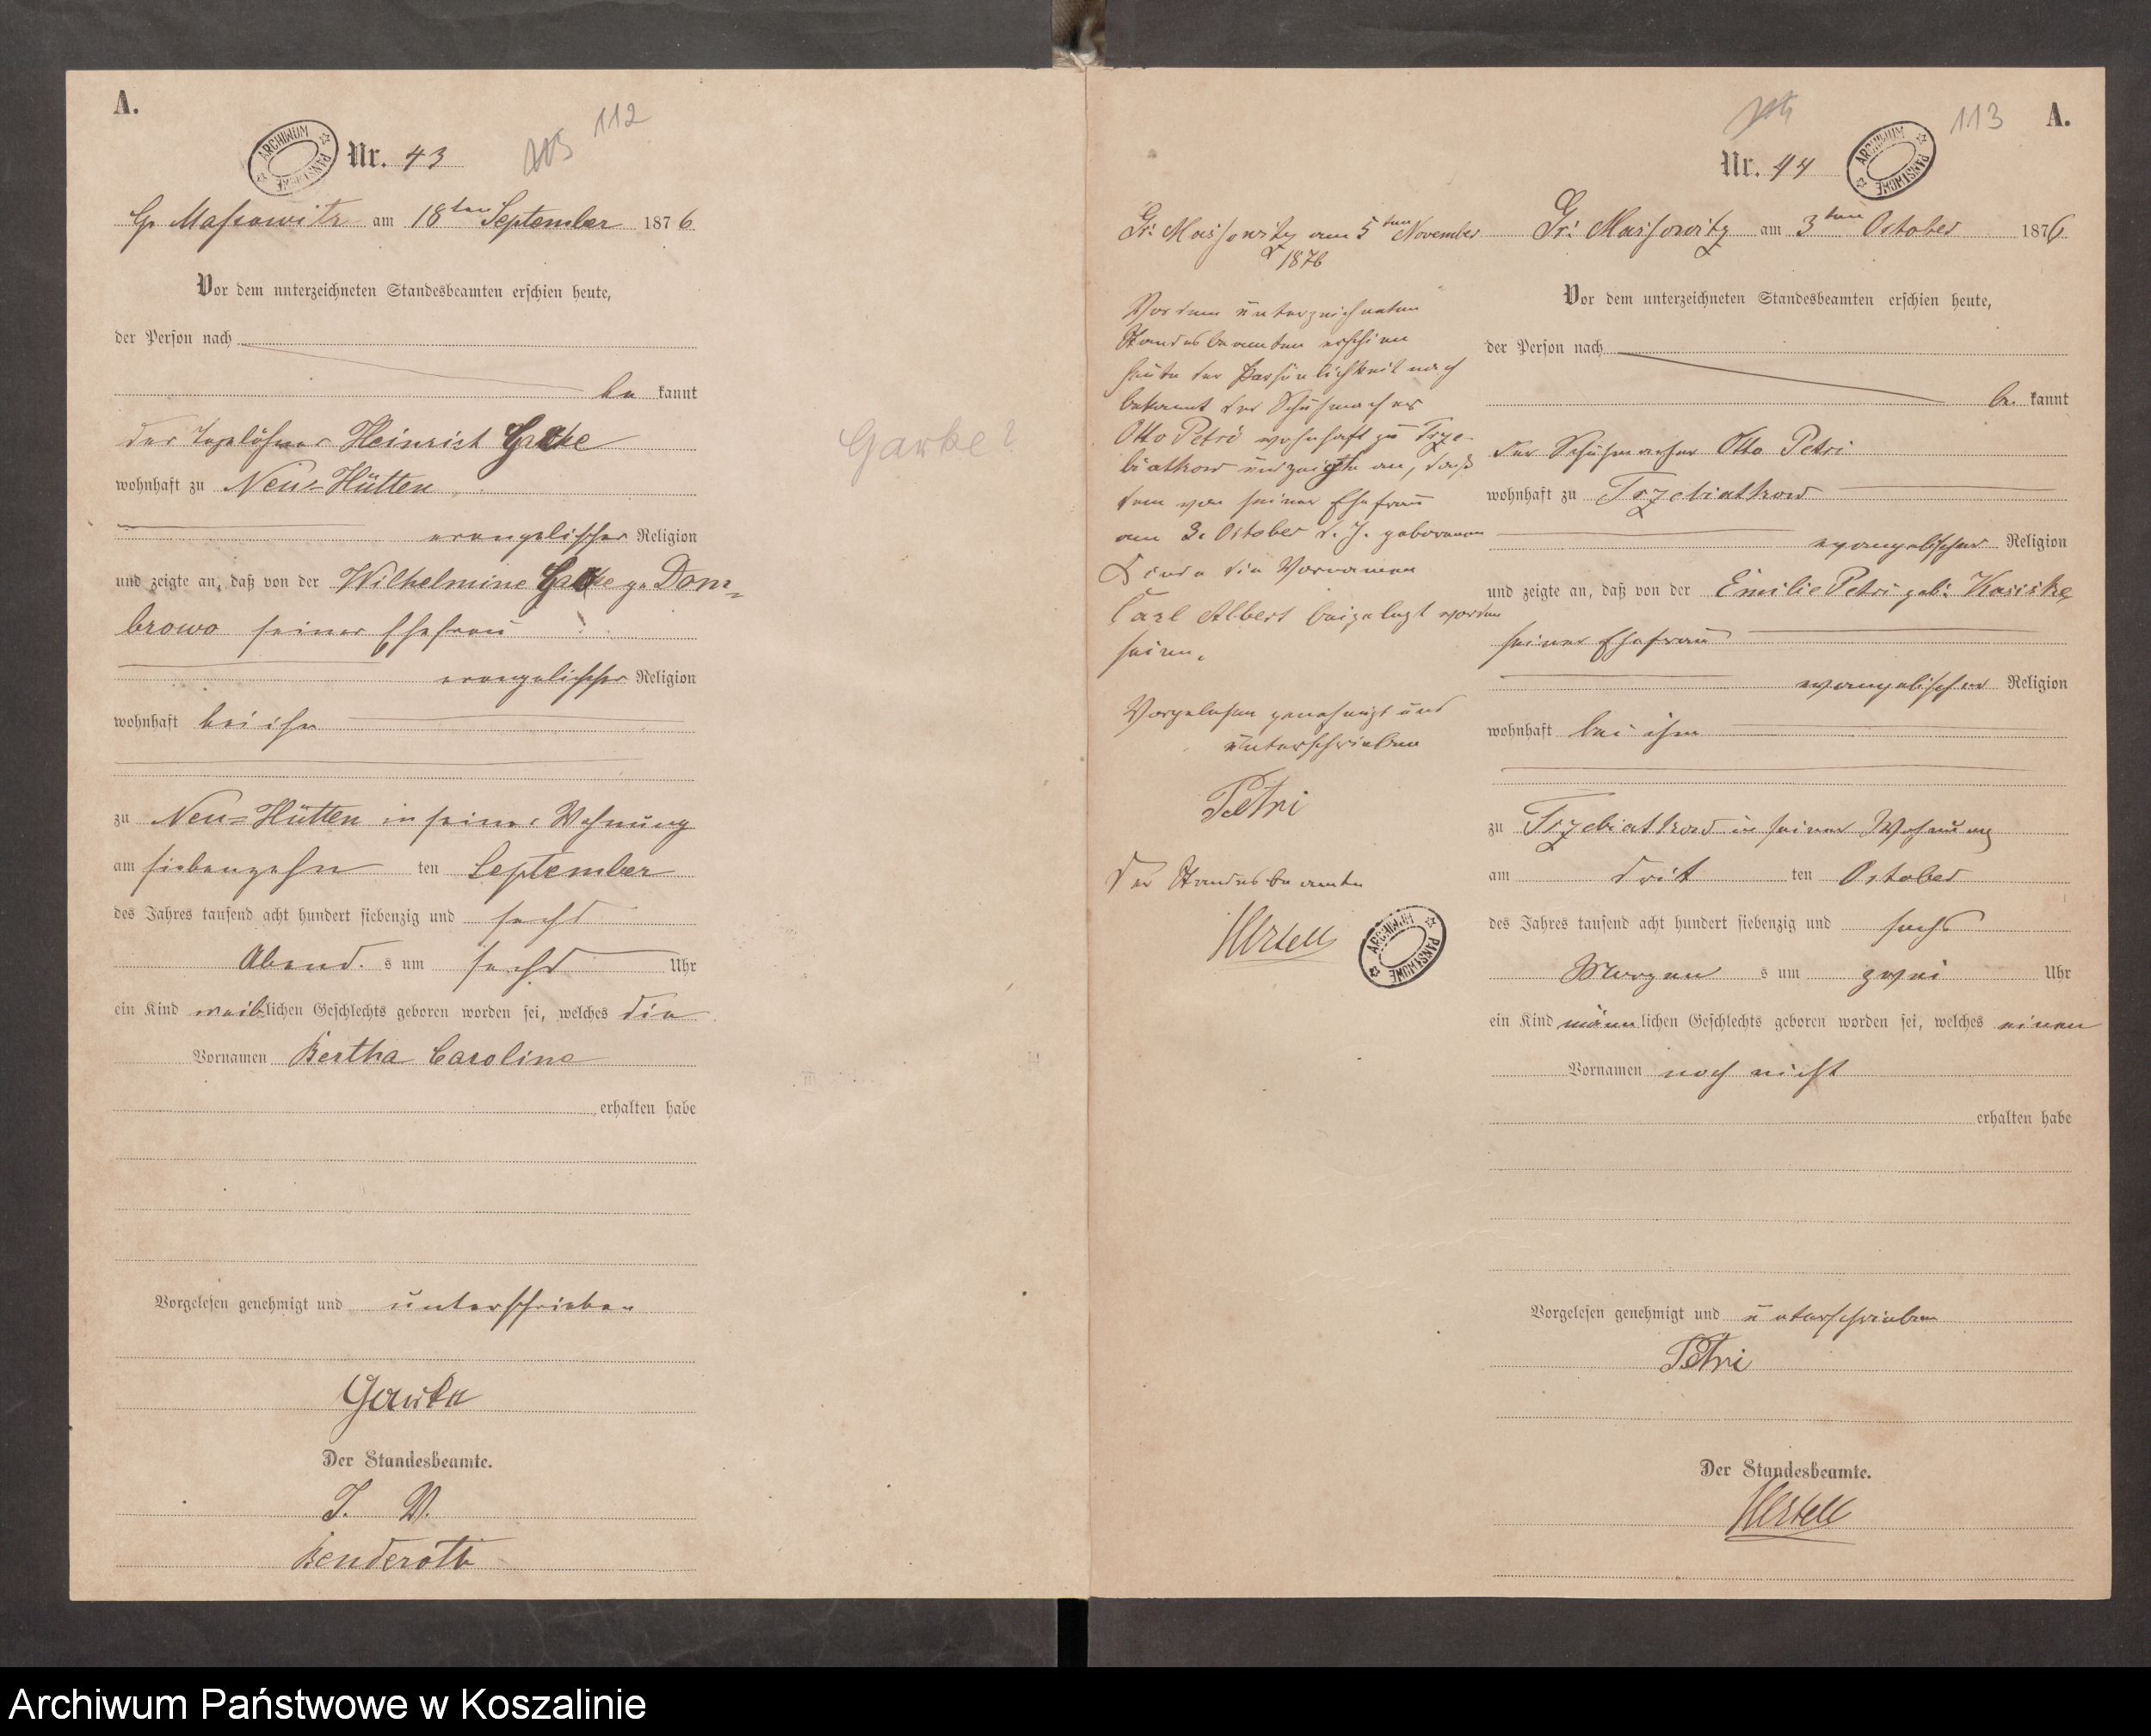 A.
112
ARCHIWUM PAŃSTWOWE
Nr. 43
Gr Massowitz am 18ten September 1876
Vor dem unterzeichneten Standesbeamten erschien heute,
der Person nach
be kannt
der Tagelöhner Heinrich
wohnhaft zu Neu-Hütten
evangelischer Religion
und zeigte an, daß von der Wilhelmine g. Dom-
browo seiner Ehefrau
evangelischer Religion
wohnhaft bei ihm
zu Neu-Hütten in seiner Wohnung
am siebenzehn ten September
des Jahres tausend acht hundert siebenzig und sechs
Abend s um sechs Uhr
ein Kind weiblichen Geschlechts geboren worden sei, welches die
Vornamen Bertha Caroline
erhalten habe
Vorgelesen genehmigt und unterschrieben
Garke
Der Standesbeamte.
J. V.
Benderoth
Garke?
Gr: Massowitz am 5ten November
1876
Vor dem unterzeichneten
Standesbeamten erschien
heute der Persönlichkeit nach
bekannt der Schuhmacher
Otto Petri wohnhaft zu Trze-
biatkow und zeigte an, daß
dem von seiner Ehefrau
am 3. October d. J. geborenen
Kinde die Vornamen
Carl Albert beigelegt worden
seien.
Vorgelesen genehmigt und
unterschrieben
Petri
Der Standesbeamte
Hertell
ARCHIWUM PAŃSTWOWE
113
A.
Nr. 44
ARCHIWUM PAŃSTWOWE
Gr: Massowitz am 3ten October 1876
Vor dem unterzeichneten Standesbeamten erschien heute,
der Person nach
be kannt
der Schuhmacher Otto Petri
wohnhaft zu Trzebiatkow
evangelischer Religion
und zeigte an, daß von der Emilie Petri geb: Kosiske,
seiner Ehefrau
evangelischer Religion
wohnhaft bei ihm
zu Trzebiatkow in seiner Wohnung
am drit ten October
des Jahres tausend acht hundert siebenzig und sechs
Morgen s um zwei Uhr
ein Kind männlichen Geschlechts geboren worden sei, welches einen
Vornamen noch nicht
erhalten habe
Vorgelesen genehmigt und unterschrieben
Petri
Der Standesbeamte.
Hertell
Archiwum Państwowe w Koszalinie